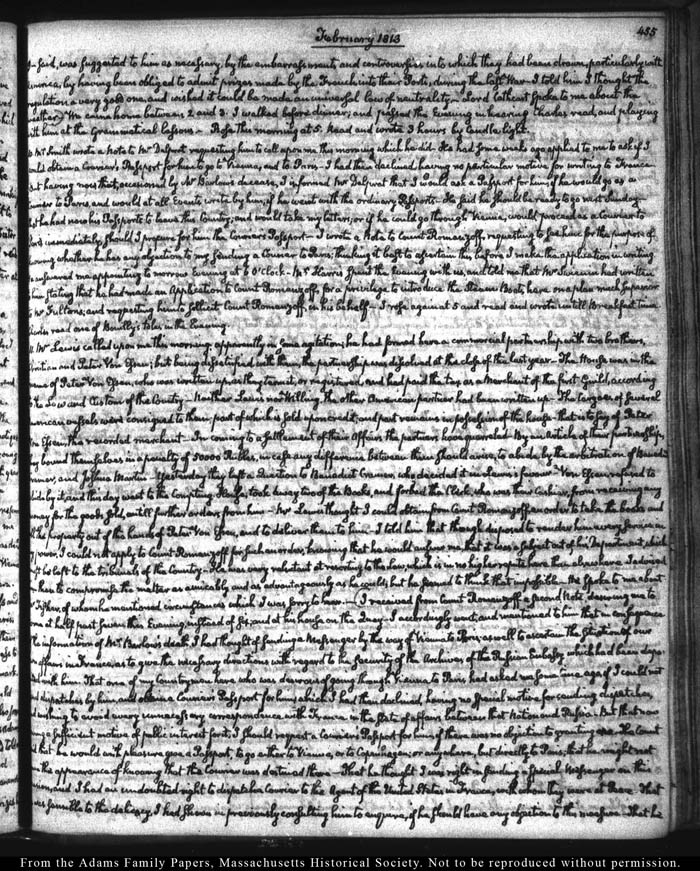 February 1813
455
said, was suggested to him as necessary, by the embarrassments and controversies into which they had been drawn, particularly with
America, by having been obliged to admit prizes made by the French into their Ports, during the last War. I told him I thought the
regulation a very good one, and wished it could be made an universal law of neutrality. Lord Cathcart spoke to me about the
weather. We came home between 2 and 3. I walked before dinner; and passed the Evening in hearing Charles read, and playing
with him at the Grammatical lessons. Rose this morning at 5. Read and wrote 3 hours by Candle light.
Mr Smith wrote a Note to Mr Delprat requesting him to call upon me this morning which he did. He had some weeks ago applied to me to ask if I
could obtain a Courier's Passport for him to go to Vienna, and to Paris. I had then declined having no particular motive for writing to France
but having now that, occasioned by Mr Barlow's decease, I informed Mr Delprat that I would ask a Passport for him, if he would go as a
Courier to Paris and would at all Events write by him, if he went with the ordinary Passports. He said he should be ready to go next Sunday
that he had now his Passports to leave this Country; and would take my letters; or if he could go through Vienna, would proceed as a Courier to
Paris immediately, should I procure for him the Courier's Passport. I wrote a Note to Count Romanzoff, requesting to see him for the purpose of
knowing whether he has any objection to my sending a Courier to Paris; thinking it best to ascertain this before I make the application in writing.
He answered me appointing to morrow Evening at 6 O'Clock. Mr Harris spent the Evening with us, and told me that Mr Swinin had written
him stating that he had made an Application to Count Romanzoff, for a privilege to introduce the Steam Boat here on a plan much superior
to Mr Fulton's; and requesting him to sollicit Count Romanzoff, in his behalf. I rose again at 5 and read and wrote untill Breakfast time
Charles read one of Bouilly's tales in the Evening
Mr Lewis called upon me this morning, apparently in some agitation; he had formed here a commercial partnership with two brothers,
and Peter Von Essen; but being dissatisfied with them, the partnership was dissolved at the close of the last year. The House was in the
name of Peter Von Essen, who was written up as they term it, or registered, and had paid the tax as a Merchant of the first Guild, according
to the Law and Custom of the Country. Neither Lewis nor Willing the other American partner had been written up. The Cargoes of several
American vessels were consigned to them part of which is sold upon credit, and part remains in possession of the house that is to say of Peter
Von Essen, the recorded merchant. In coming to a settlement of their affairs the partners have quarreled. By an article of their partnership,
they bound themselves in a penalty of 50000 Rubles, in case any difference between them should arise, to abide by the arbitration of Benedict
Cramer, and Joshua Martin. Yesterday they left a Question to Benedict Cramer, who decided it in Lewis's favour. Von Essen refused to
abide by it; and this day went to the Compting House, took away two of the Books, and forbad the Clerk, who was their Cashier, from receiving any
money for the goods sold, untill further orders from him. Mr Lewis thought I could obtain from Count Romanzoff an order to take the books and
all the property out of the hands of Peter Von Essen, and to deliver them to him. I told him that though disposed to render him every service in
my power, I could not apply to Count Romanzoff for such an order, knowing that he would answer me that it was a subject not of his Department, which
must be left to the tribunals of the Country. He was very reluctant at resorting to the law, which is in no higher repute here than elsewhere. I advised
him to compromise the matter as amicably and as advantageously as he could; but he seemed to think that impossible. He spoke to me about
of whom he mentioned circumstances which I was sorry to hear. I received from Count Romanzoff a second Note, desiring me to
come at half past seven this Evening, instead of six, and at his house on the Quay. I accordingly went, and mentioned to him that in consequence
of the information of Mr Barlow's death, I had thought of sending a Messenger by the way of Vienna to Paris; as well to ascertain the situation of our
affairs in France, as to give the necessary directions with regard to the security of the Archives of the Russian Embassy which had been deposited
with him. That one of my Countrymen here who was desirous of going through Vienna to Paris had asked me some time ago if I could not
send dispatches by him and obtain a Courier's Passport for him, which I had then declined, having no special motive for sending dispatches,
and wishing to avoid every unnecessary correspondence with France in the state of affairs between that Nation and Russia. But that now
having a sufficient motive of public interest for it, I should request a Courier's Passport for him if there was no objection to granting one. The Count
said that he would with pleasure give a Passport, to go either to Vienna, or to Copenhagen; or anywhere, but directly to Paris; that he might not
have the appearance of knowing that the Courier was destined there. That he thought I was right in sending a special Messenger on this
occasion, and I had an undoubted right to dispatch a Courier to the Agent of the United States in France, with whom they were at Peace. That
he was sensible to the delicacy, I had shewn in previously consulting him to enquire, if he should have any objection to this measure. That he
From the Adams Family Papers, Massachusetts Historical Society. Not to be reproduced without permission.